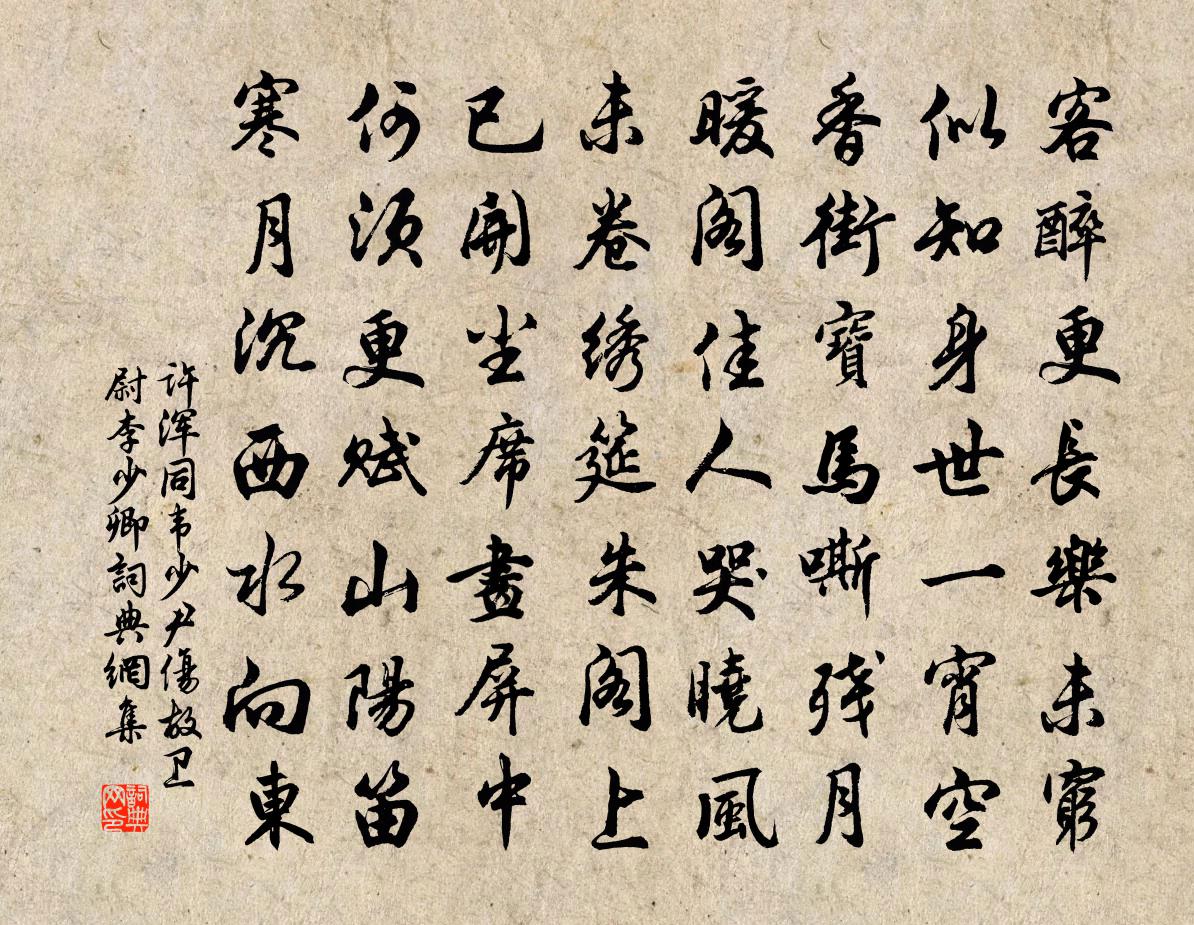 客醉更長樂未窮
似知身世一宵空
香街寶馬嘶残月
暖阁佳人哭曉風
未卷绣筵朱阁上
已開坐席畫屏中
何须更赋山陽笛
寒月沉西水向東
许浑同韦少尹傷故卫
尉李少卿詞典網集
詞典网印